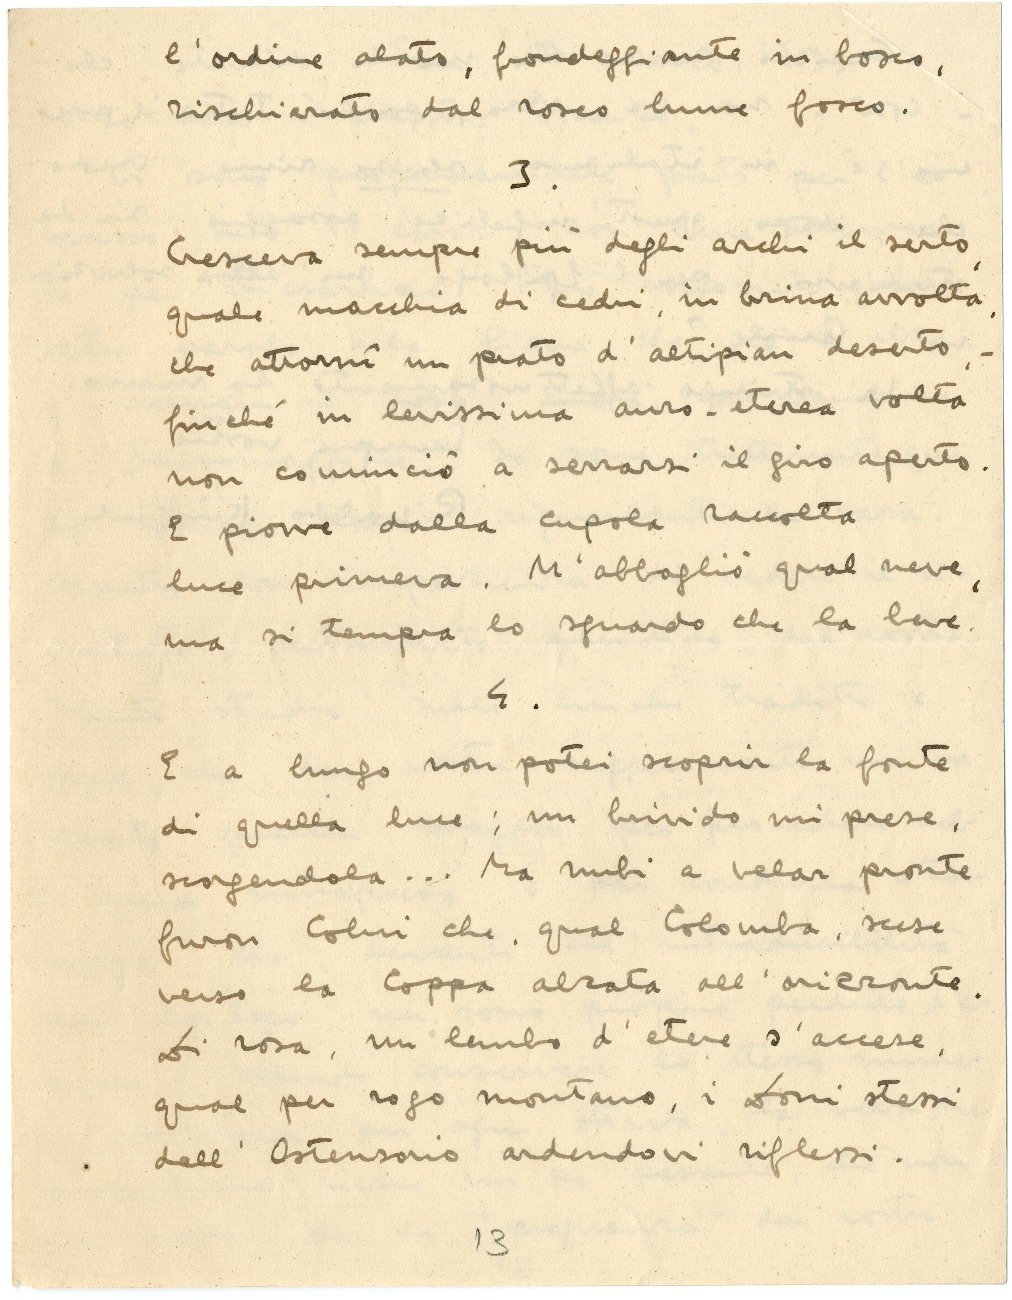 l'ordine alato, frondeggiante in bosco,
rischiarato dal roseo lume fosco.
3.
Cresceva sempre più degli archi il serto,
quale macchia di cedri, in brina avvolta,
che attorni un prato d'altipian deserto,-
finché in levissima auro-eterea volta
non cominciò a serrarsi il giro aperto.
E piovve dalla cupola raccolta
luce primeva. M'abbagliò qual neve,
ma si tempra lo sguardo che la beve.
4.
E a lungo non potei scoprir la fonte
di quella luce; un brivido mi prese,
scorgendola... Ma nubi a velar pronte
furon Colui che, qual Colomba, scese
verso la Coppa alzata all'orizzonte.
Di rosa, un lembo d'etere s'accese,
qual per rogo montano, i Doni stessi
dell'Ostensorio ardendovi riflessi.
13